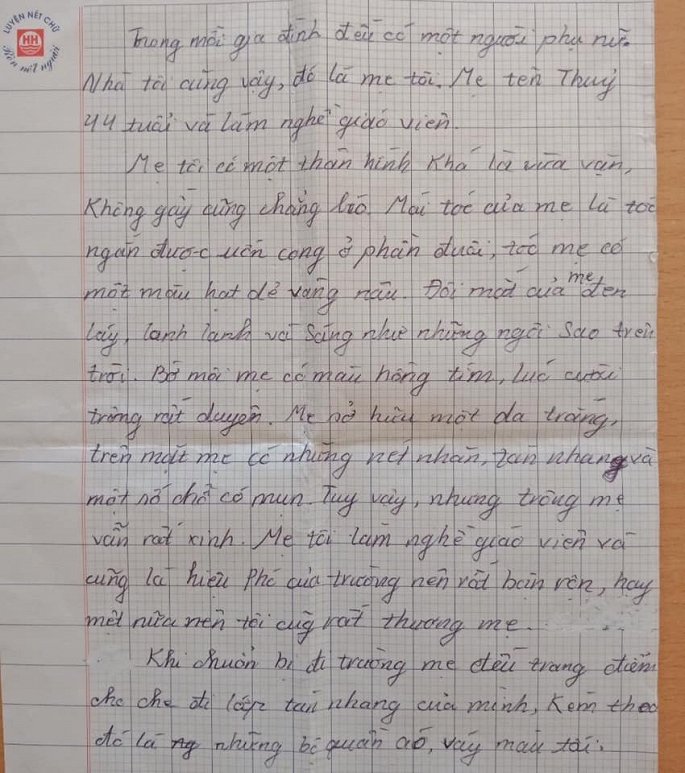 LUYỆN NÉT CHỮ
Rèn nết người
Trong mỗi gia đình đều có một người phụ nữ.
Nhà tôi cũng vậy, đó là mẹ tôi. Mẹ tên Thuỷ
44 tuổi và làm nghề giáo viên.
Mẹ tôi có một thân hình khá là vừa vặn,
không gầy cũng chẳng béo. Mái tóc của mẹ là tóc
ngắn được uốn cong ở phần đuôi, tóc mẹ có
một màu hạt dẻ vàng nâu. Đôi mắt của mẹ đen
láy, lanh lanh và sáng như những ngôi sao trên
trời. Bờ môi mẹ có màu hồng tím, lúc cười
trông rất duyên. Mẹ sở hữu một da trắng,
trên mặt mẹ có những nét nhăn, tàn nhang và
một số chỗ có mụn. Tuy vậy, nhưng trông mẹ
vẫn rất xinh. Mẹ tôi làm nghề giáo viên và
cũng là hiệu phó của trường nên rất bận rộn, hay
mệt nữa nên tôi cũg rất thương mẹ.
Khi chuẩn bị đi trường mẹ đều trang điểm
che che đi lớp tàn nhang của mình, kèm theo
đó là ng những bộ quần áo, váy màu tối.